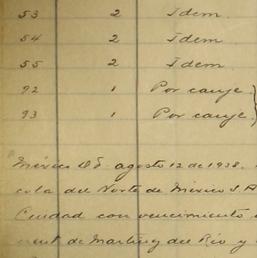 53 2 Idem.
54 2 Idem
55 2 Idem
92 1 Por canje.
93 1 Por canje.
México D.F. agosto 12 de 1938.
cola del Norte de México S A
Ciudad con vencimiento
de Martínez del Río y